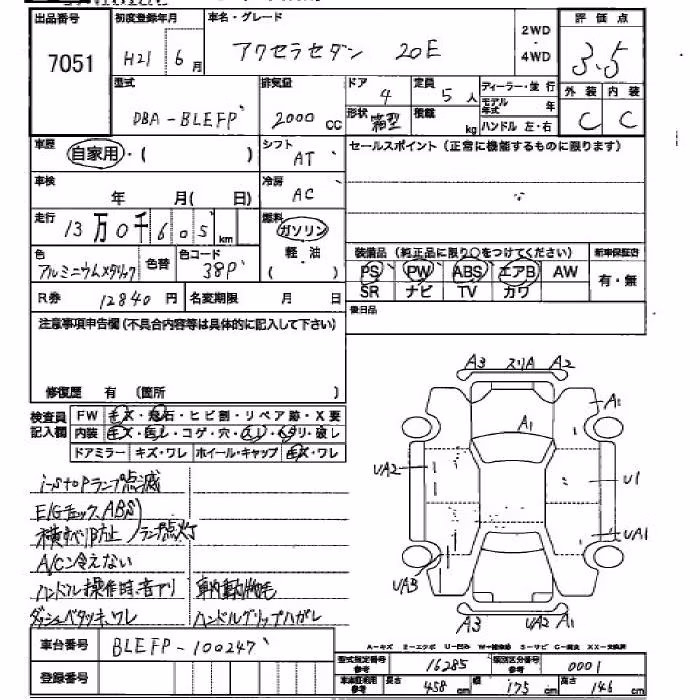 出品番号 初度登録年月 車名・グレード 評価点
7051 H21 6月 アクセラセダン 20E 2WD・4WD 3.5
外装 内装
C C
型式 排気量 ドア 定員 ディーラー・並行
DBA-BLEFP 2000 cc 4 5人 モデル年式 年
形状 箱型 積載 kg ハンドル 左・右
車歴 自家用・( ) シフト AT セールスポイント(正常に機能するものに限ります)
車検 年 月( 日) 冷房 AC
走行 13万0千605km 燃料 ガソリン
軽油
( )
色 アルミニウムメタリック 色替 色コード 38P
装備品(純正品に限り○をつけてください) 新車保証書
PS PW ABS エアB AW 有・無
SR ナビ TV カワ
R券 12840円 名変期限 月 日 後日品
注意事項申告欄(不具合内容等は具体的に記入して下さい)
修復歴 有 (箇所 )
検査員記入欄 FW キズ・飛石・ヒビ割・リペア跡・X要
内装 キズ・ヨゴレ・コゲ・穴・スレ・ヘタリ・破レ
ドアミラー キズ・ワレ ホイール・キャップ キズ・ワレ
i-stopランプ点滅
E/Gチェック,ABS
横すべり防止 ランプ点灯
A/C冷えない
ハンドル操作時、音アリ 車内動物毛
ダッシュベタツキ、ワレ ハンドルグリップハガレ
A3 スリA A2
A1
A1
UA2
U1
UA1
UA3
A3 UA2 A1
A-キズ E-エクボ U-凹ミ W-補修跡 S-サビ C-腐食 XX-交換済
車台番号 BLEFP-100247
登録番号
型式指定番号 参考 16285 類別区分番号 参考 0001
車検証明用 参考 長さ 458cm 幅 175cm 高さ 146cm